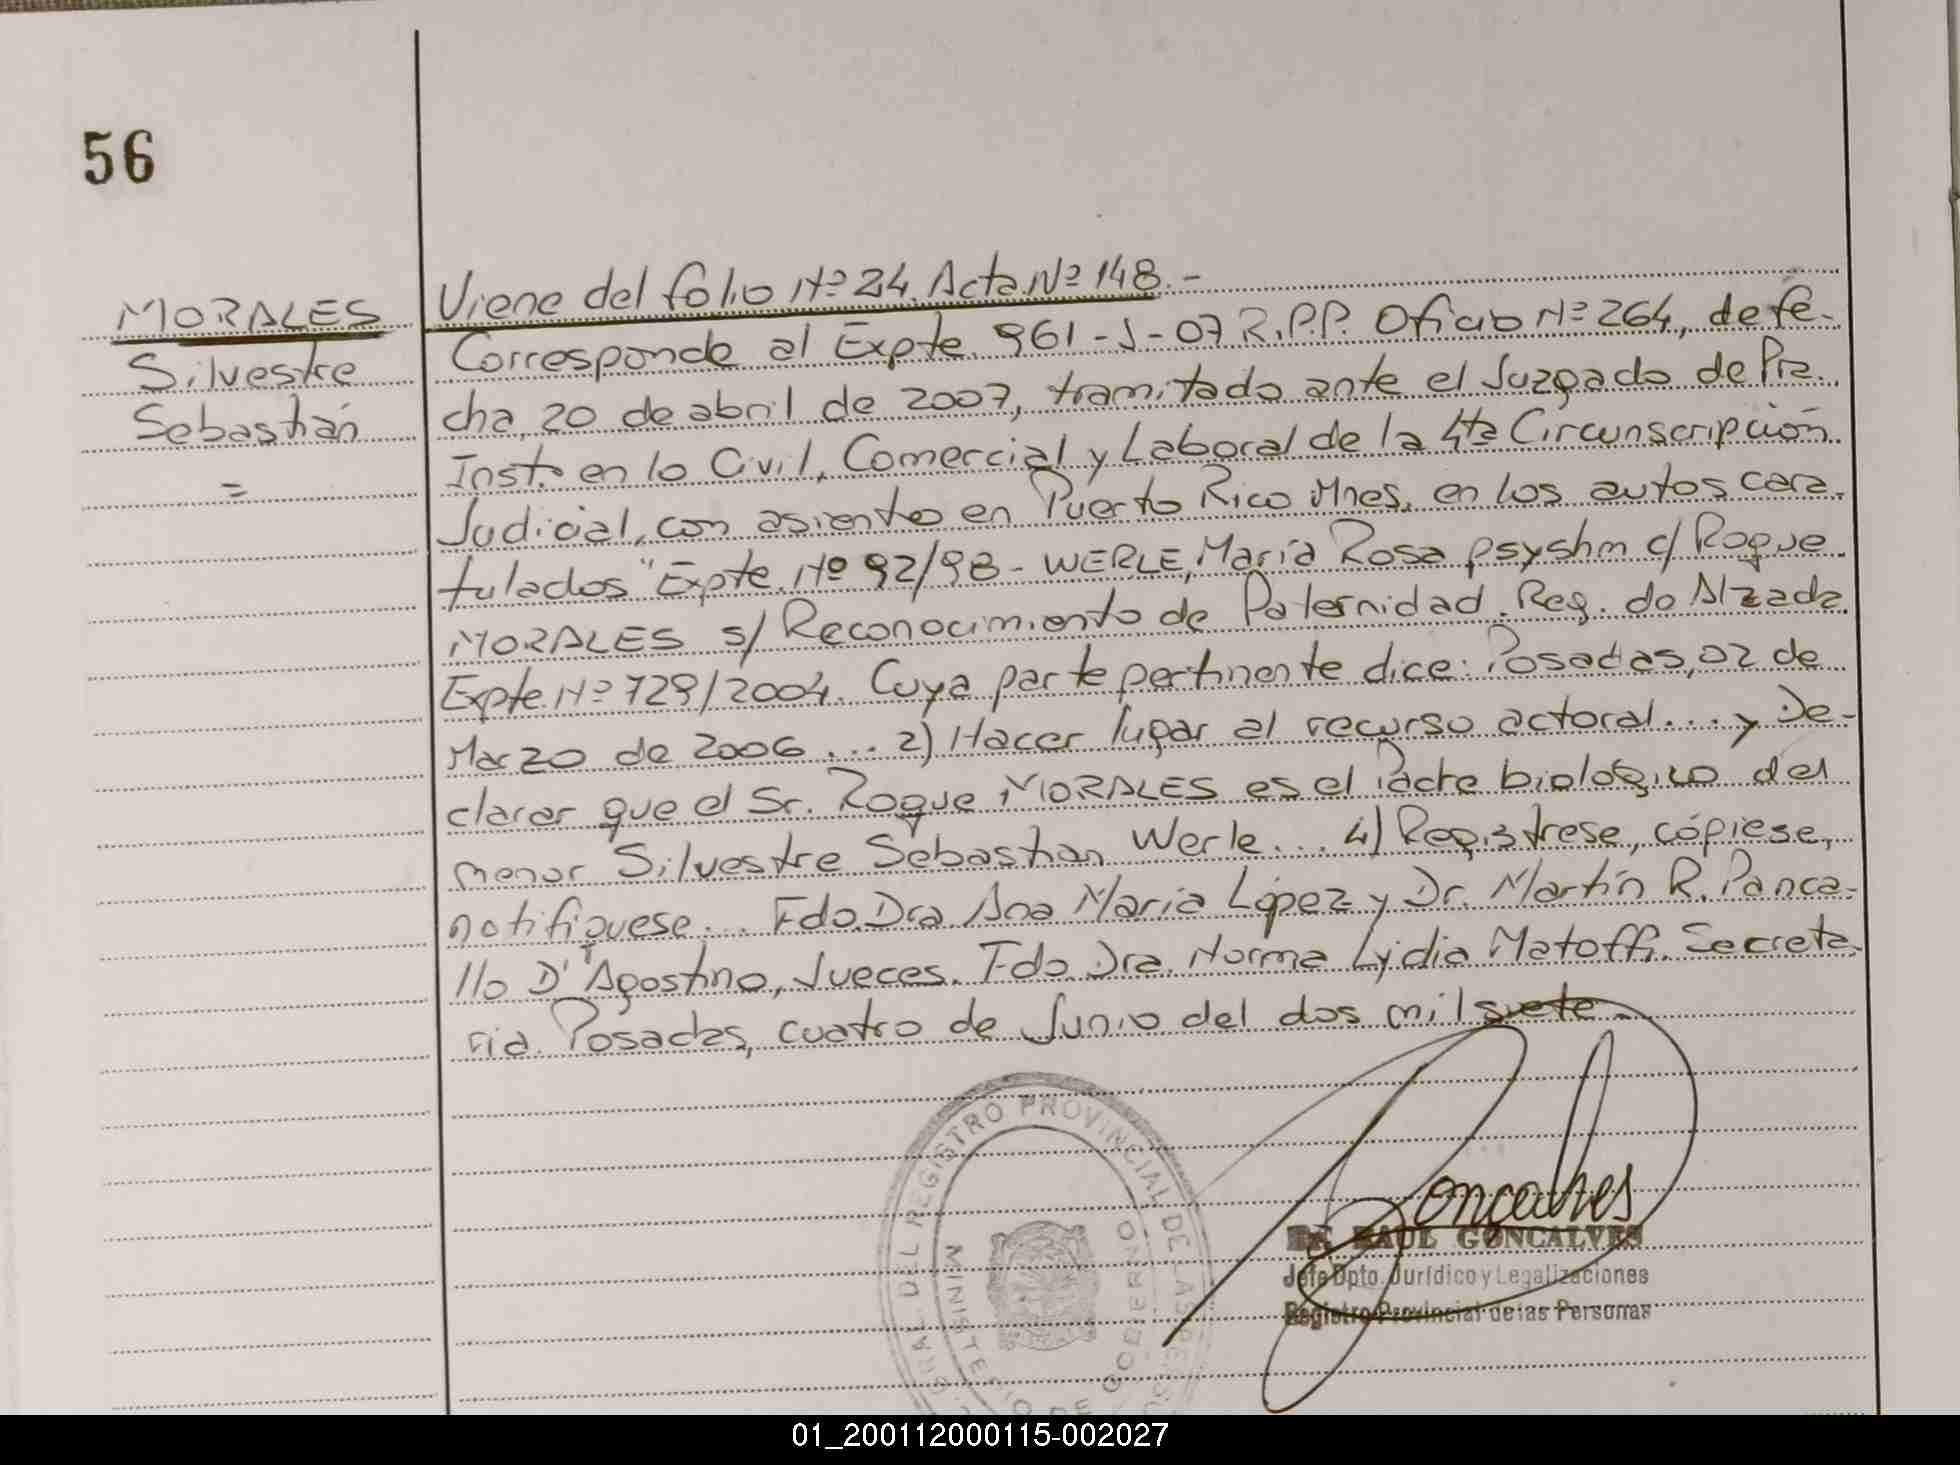 56
MORALES
Silvestre
Sebastián
=
Viene del folio Nº 24. Acta Nº 148.-
Corresponde al Expte. 961-J-07 R.P.P. Oficio Nº 264, de fe-
cha, 20 de abril de 2007, tramitado ante el Juzgado de Pra.
Inst. en lo Civil, Comercial y Laboral de la 4ta Circunscripción
Judicial, con asiento en Puerto Rico Mnes, en los autos cara-
tulados "Expte. Nº 92/98 - WERLE, María Rosa psyshm c/ Roque
MORALES s/ Reconocimiento de Paternidad. Reg. do Alzada
Expte. Nº 729/2004. Cuya parte pertinente dice: Posadas, 02 de
Marzo de 2006 ... 2) Hacer lugar al recurso actoral.... y De-
clarar que el Sr. Roque MORALES es el Padre biológico del
menor Silvestre Sebastian Werle... 4) Registrese, cópiese,
notifiquese... Fdo. Dra Ana María López y Dr. Martín R. Panca-
llo D'Agostino, Jueces. Fdo. Dra. Norma Lydia Matoffi. Secreta-
ria. Posadas, cuatro de Junio del dos mil siete.
DEL REGISTRO PROVINCIAL DE LAS
MINISTERIO DE GOBIERNO
Goncalves
Dr. RAUL GONCALVES
Jefe Dpto. Jurídico y Legalizaciones
Registro Provincial de las Personas
01_200112000115-002027